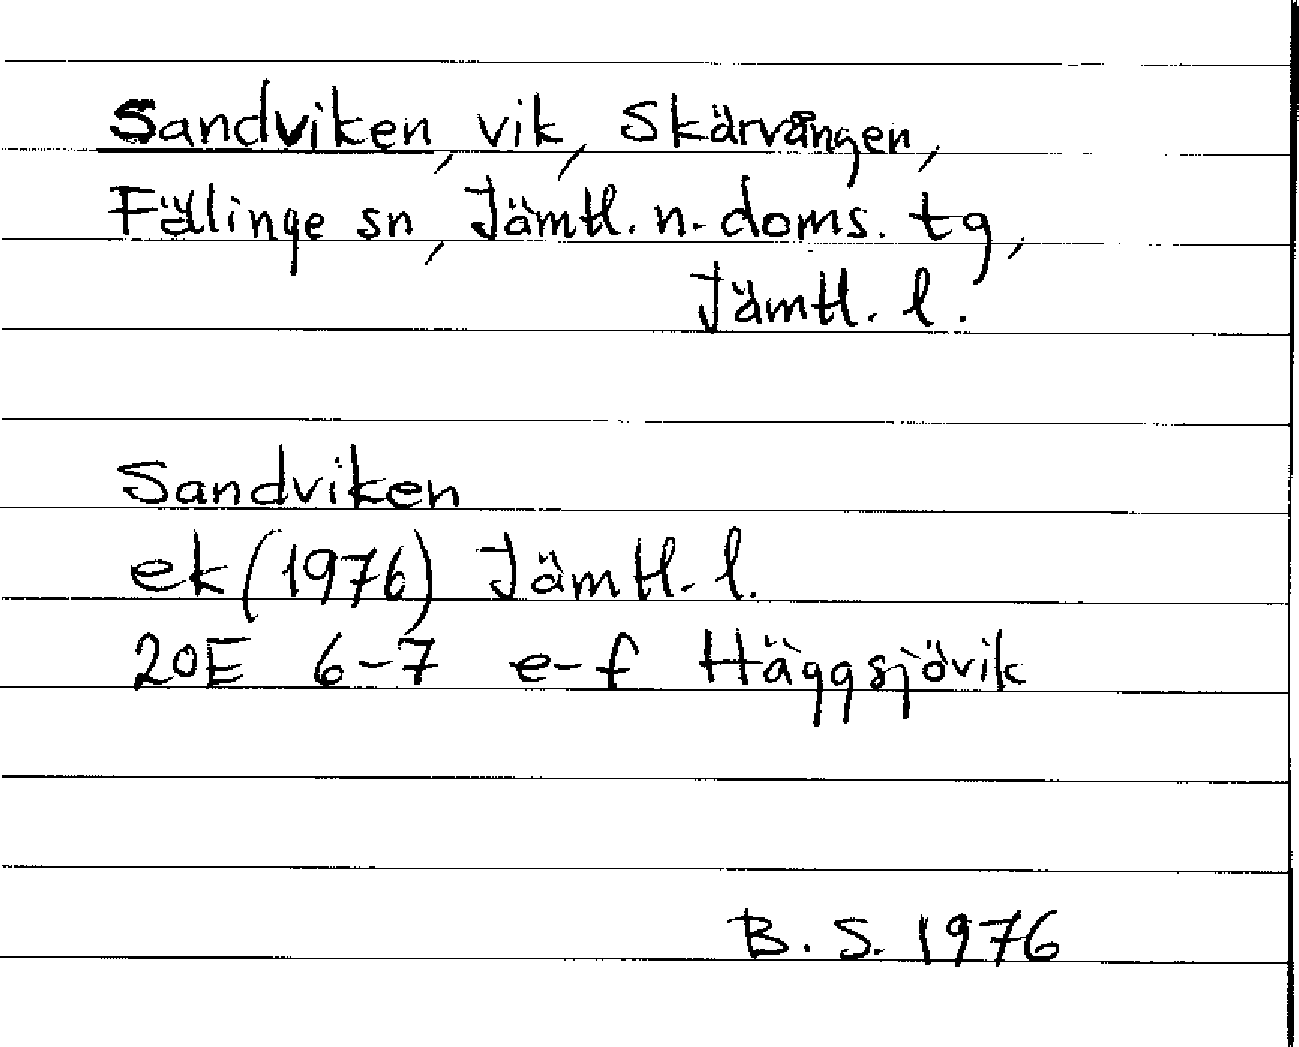 Sandviken, vik, Skärvången,
Föllinge sn, Jämtl. n. doms. tg,
Jämtl. l.
Sandviken
ek (1976) Jämtl. l.
20E 6-7 e-f Häggsjövik
B. S. 1976